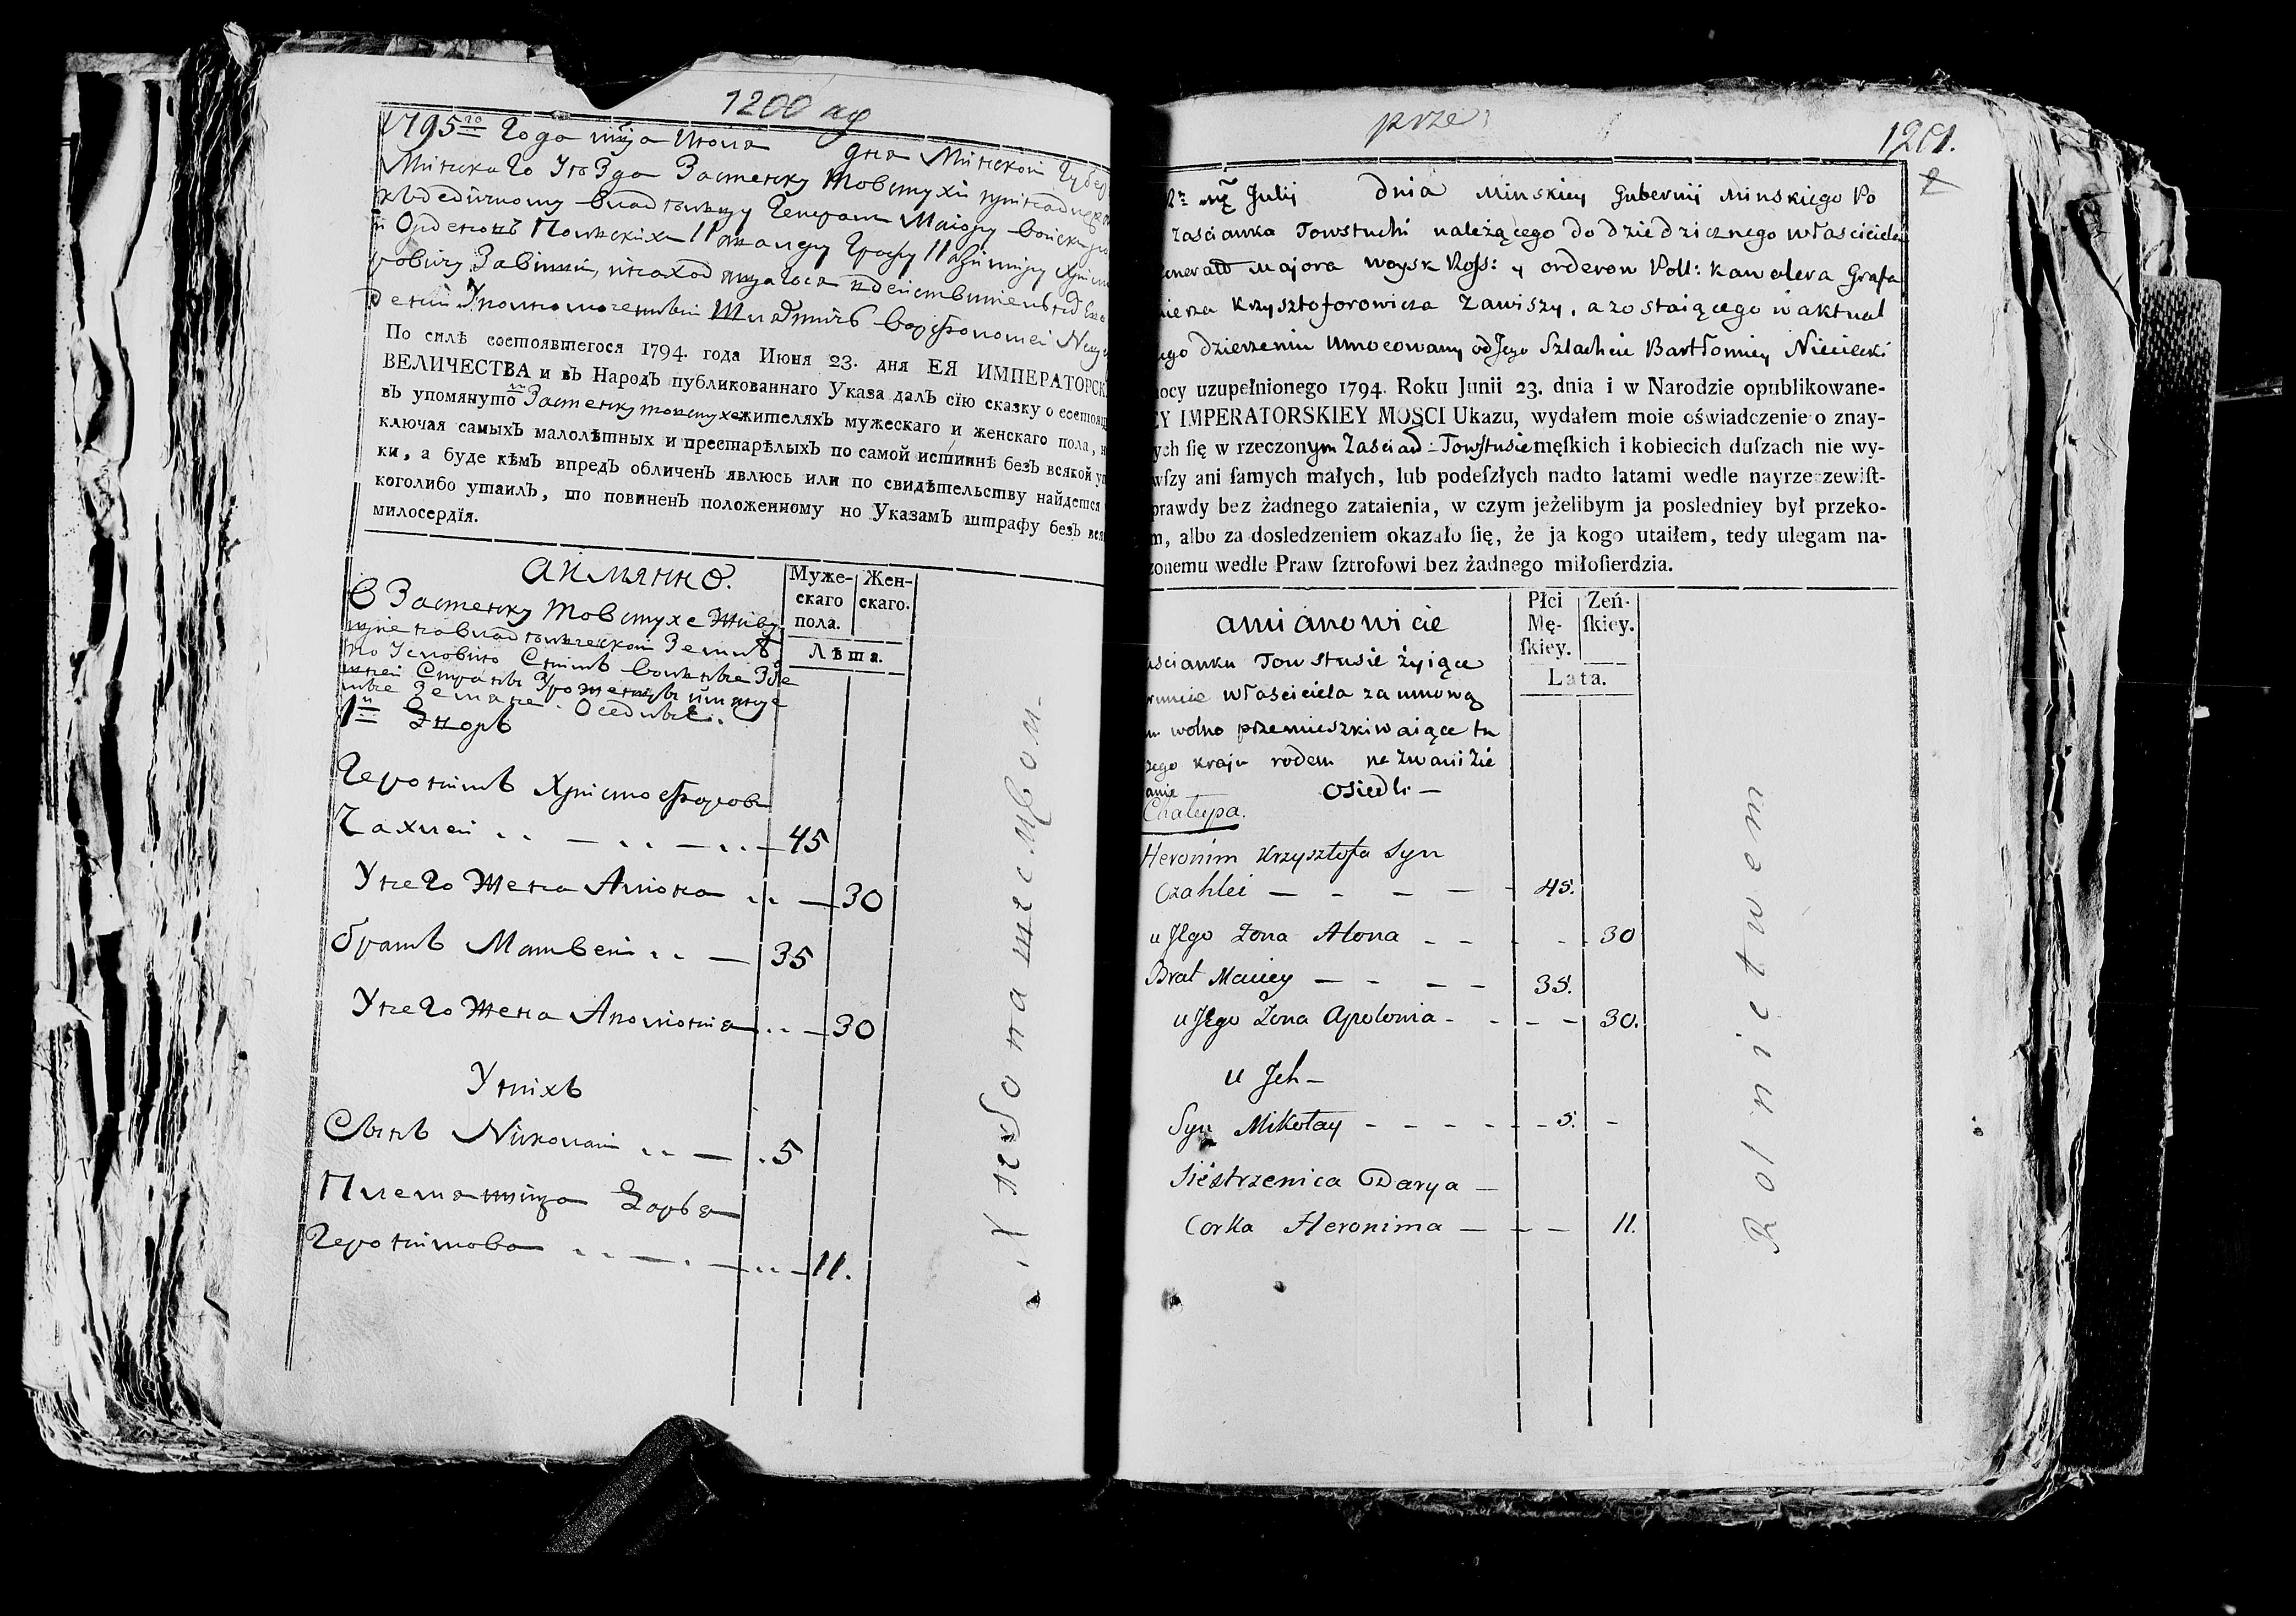 1200 
1795го года мца Июля дня Минской Губер
Минскаго Уезда Застенку Товстухи принадлежа
владельцу Генерал Маиору Войскъ
и Орденовъ Польскихъ Кавалеру Графу Казимиру Христо
ровичу Завиши, находящагося в действительномъ
Вартоломей
По силѣ состоявшегося 1794. года Июня 23. дня ЕЯ ИМПЕРАТОРСК
ВЕЛИЧЕСТВА и въ Народъ публикованнаго Указа далъ сію сказку о состоя
въ упомянуто Застенку товстухе жителяхъ мужескаго и женскаго пола, н
ключая самыхъ малолѣтныхъ и престарѣлыхъ по самой истиннѣ безъ всякой у
ки, а буде кѣмъ впредъ обличенъ явлюсь или по свидѣтельству найдется
коголибо утаилъ, то повиненъ положенному по Указамъ штрафу безъ вся
милосердія.
аимянно.
Муже-
скаго
пола.
Жен-
скаго.
Лѣта.
В Застенку товстухе живу
щие на владельческой Земли
по условию
Земяне Оседлые.
1й Двор
Героним Христофоров
Чахлей 45
У него жена Алиона 30
братъ Матвей 35
У него жена Аполония 30
У них
Сынъ Николай 5
Племяница Дарья
Геронимова 11.
Хлебопашеством.
prze
1201.
2
Ru mcą Julij dnia Minskiey Gubernij Minskiego Po
Zascianka Towstuchi należącego do dziedzicznego właściciela
enerał Majora woysk Ross: y orderow Poll: Kawalera Grafa
ierza Krzysztoforowicza Zawiszy, a zostaiącego w aktual
ego dzierzeniu Umocowany od Jego Szlachcic Bartłomiey Niciecki
ocy uzupełnionego 1794. Roku Junii 23. dnia i w Narodzie opublikowane-
EY IMPERATORSKIEY MOSCI Ukazu, wydałem moie oświadczenie o znay-
ych ſię w rzeczonym Zaścian: Towſtusie męſkich i kobiecich duſzach nie wy-
wſzy ani ſamych małych, lub podeſzłych nadto latami wedle nayrzeczewiſt-
prawdy bez żadnego zataienia, w czym jeżelibym ja posledniey był przeko-
m, albo za dosledzeniem okazało ſię, że ja kogo utaiłem, tedy ulegam na-
zonemu wedle Praw ſztrofowi bez żadnego miłoſierdzia.
amianowicie
Płci
Mę-
ſkiey.
Zeń-
ſkiey.
Lata.
ascianku Towstusie żyiące
runcie właściciela za umową
wolno przemieszkiwaiące tu
zego kraju rodem nazwani Zie
anie Osiedli —
Chałupa.
Heronim Krzysztofa Syn
Czahlei — 45.
u Jego Zona Alona 30
Brat Maciey — 35.
u Jego Zona Apolonia 30.
u Jch —
Syn Mikołay 5.
Siestrzenica Darya —
Corka Heronima — 11.
Rolnictwem